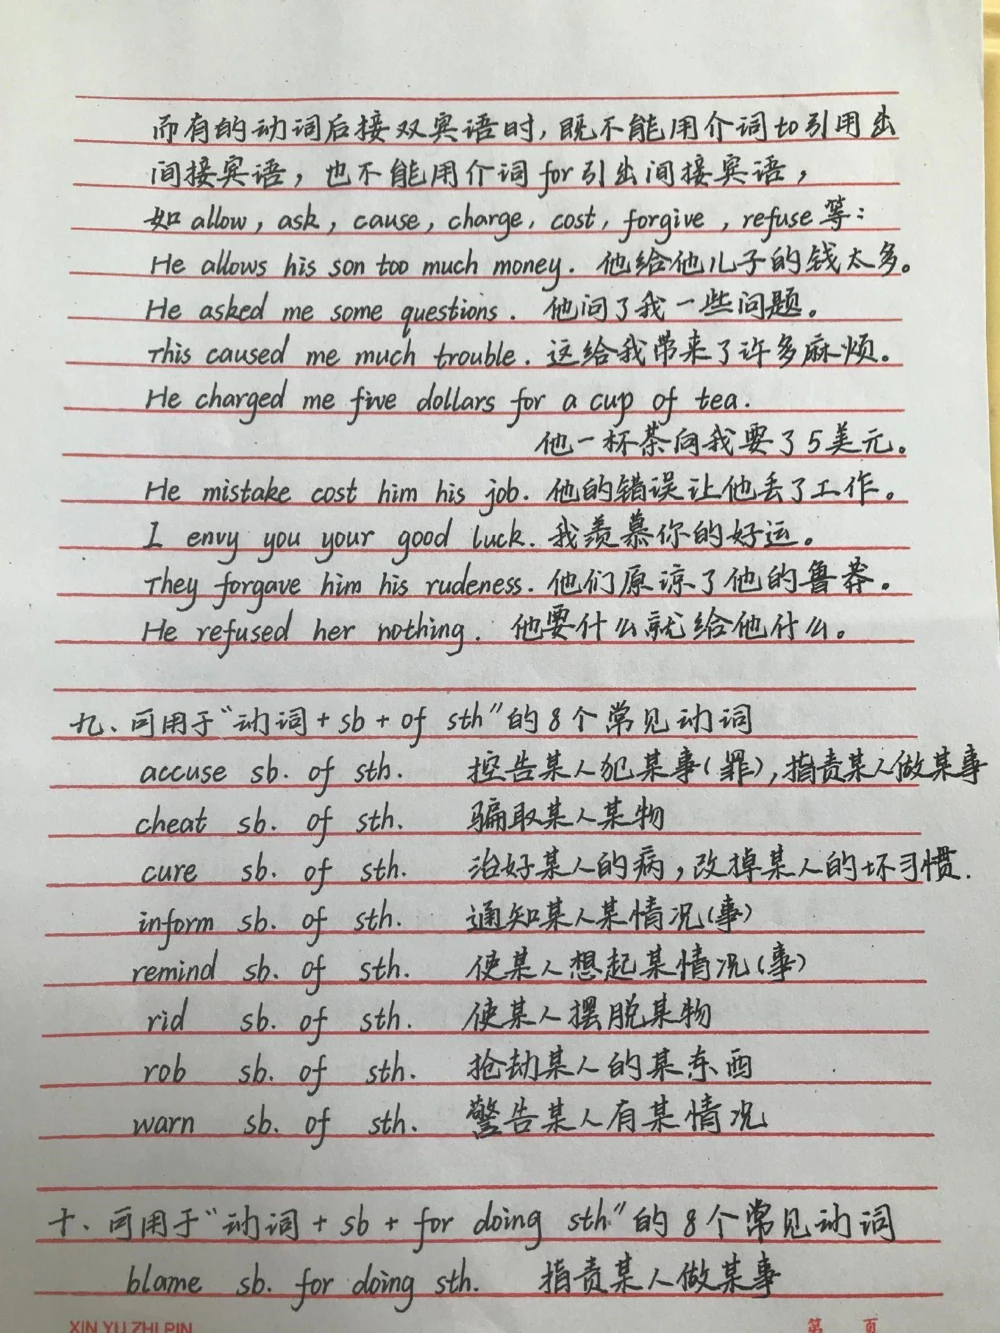 而有的动词后接双宾语时，既不能用介词to引用出
间接宾语，也不能用介词for引出间接宾语，
如allow，ask，cause，charge，cost，forgive，refuse等：
He allows his son too much money. 他给他儿子的钱太多。
He asked me some questions. 他问了我一些问题。
This caused me much trouble. 这给我带来了许多麻烦。
He charged me five dollars for a cup of tea.
他一杯茶向我要了5美元。
He mistake cost him his job. 他的错误让他丢了工作。
I envy you your good luck. 我羡慕你的好运。
They forgave him his rudeness. 他们原谅了他的鲁莽。
He refused her nothing. 他要什么就给他什么。
九、可用于“动词+sb+of sth”的8个常见动词
accuse sb. of sth. 控告某人犯某事（罪），指责某人做某事
cheat sb. of sth. 骗取某人某物
cure sb. of sth. 治好某人的病，改掉某人的坏习惯.
inform sb. of sth. 通知某人某情况（事）
remind sb. of sth. 使某人想起某情况（事）
rid sb. of sth. 使某人摆脱某物
rob sb. of sth. 抢劫某人的某东西
warn sb. of sth. 警告某人有某情况
十、可用于“动词+sb+for doing sth”的8个常见动词
blame sb. for doing sth. 指责某人做某事
XIN YU ZHI PIN 第 页